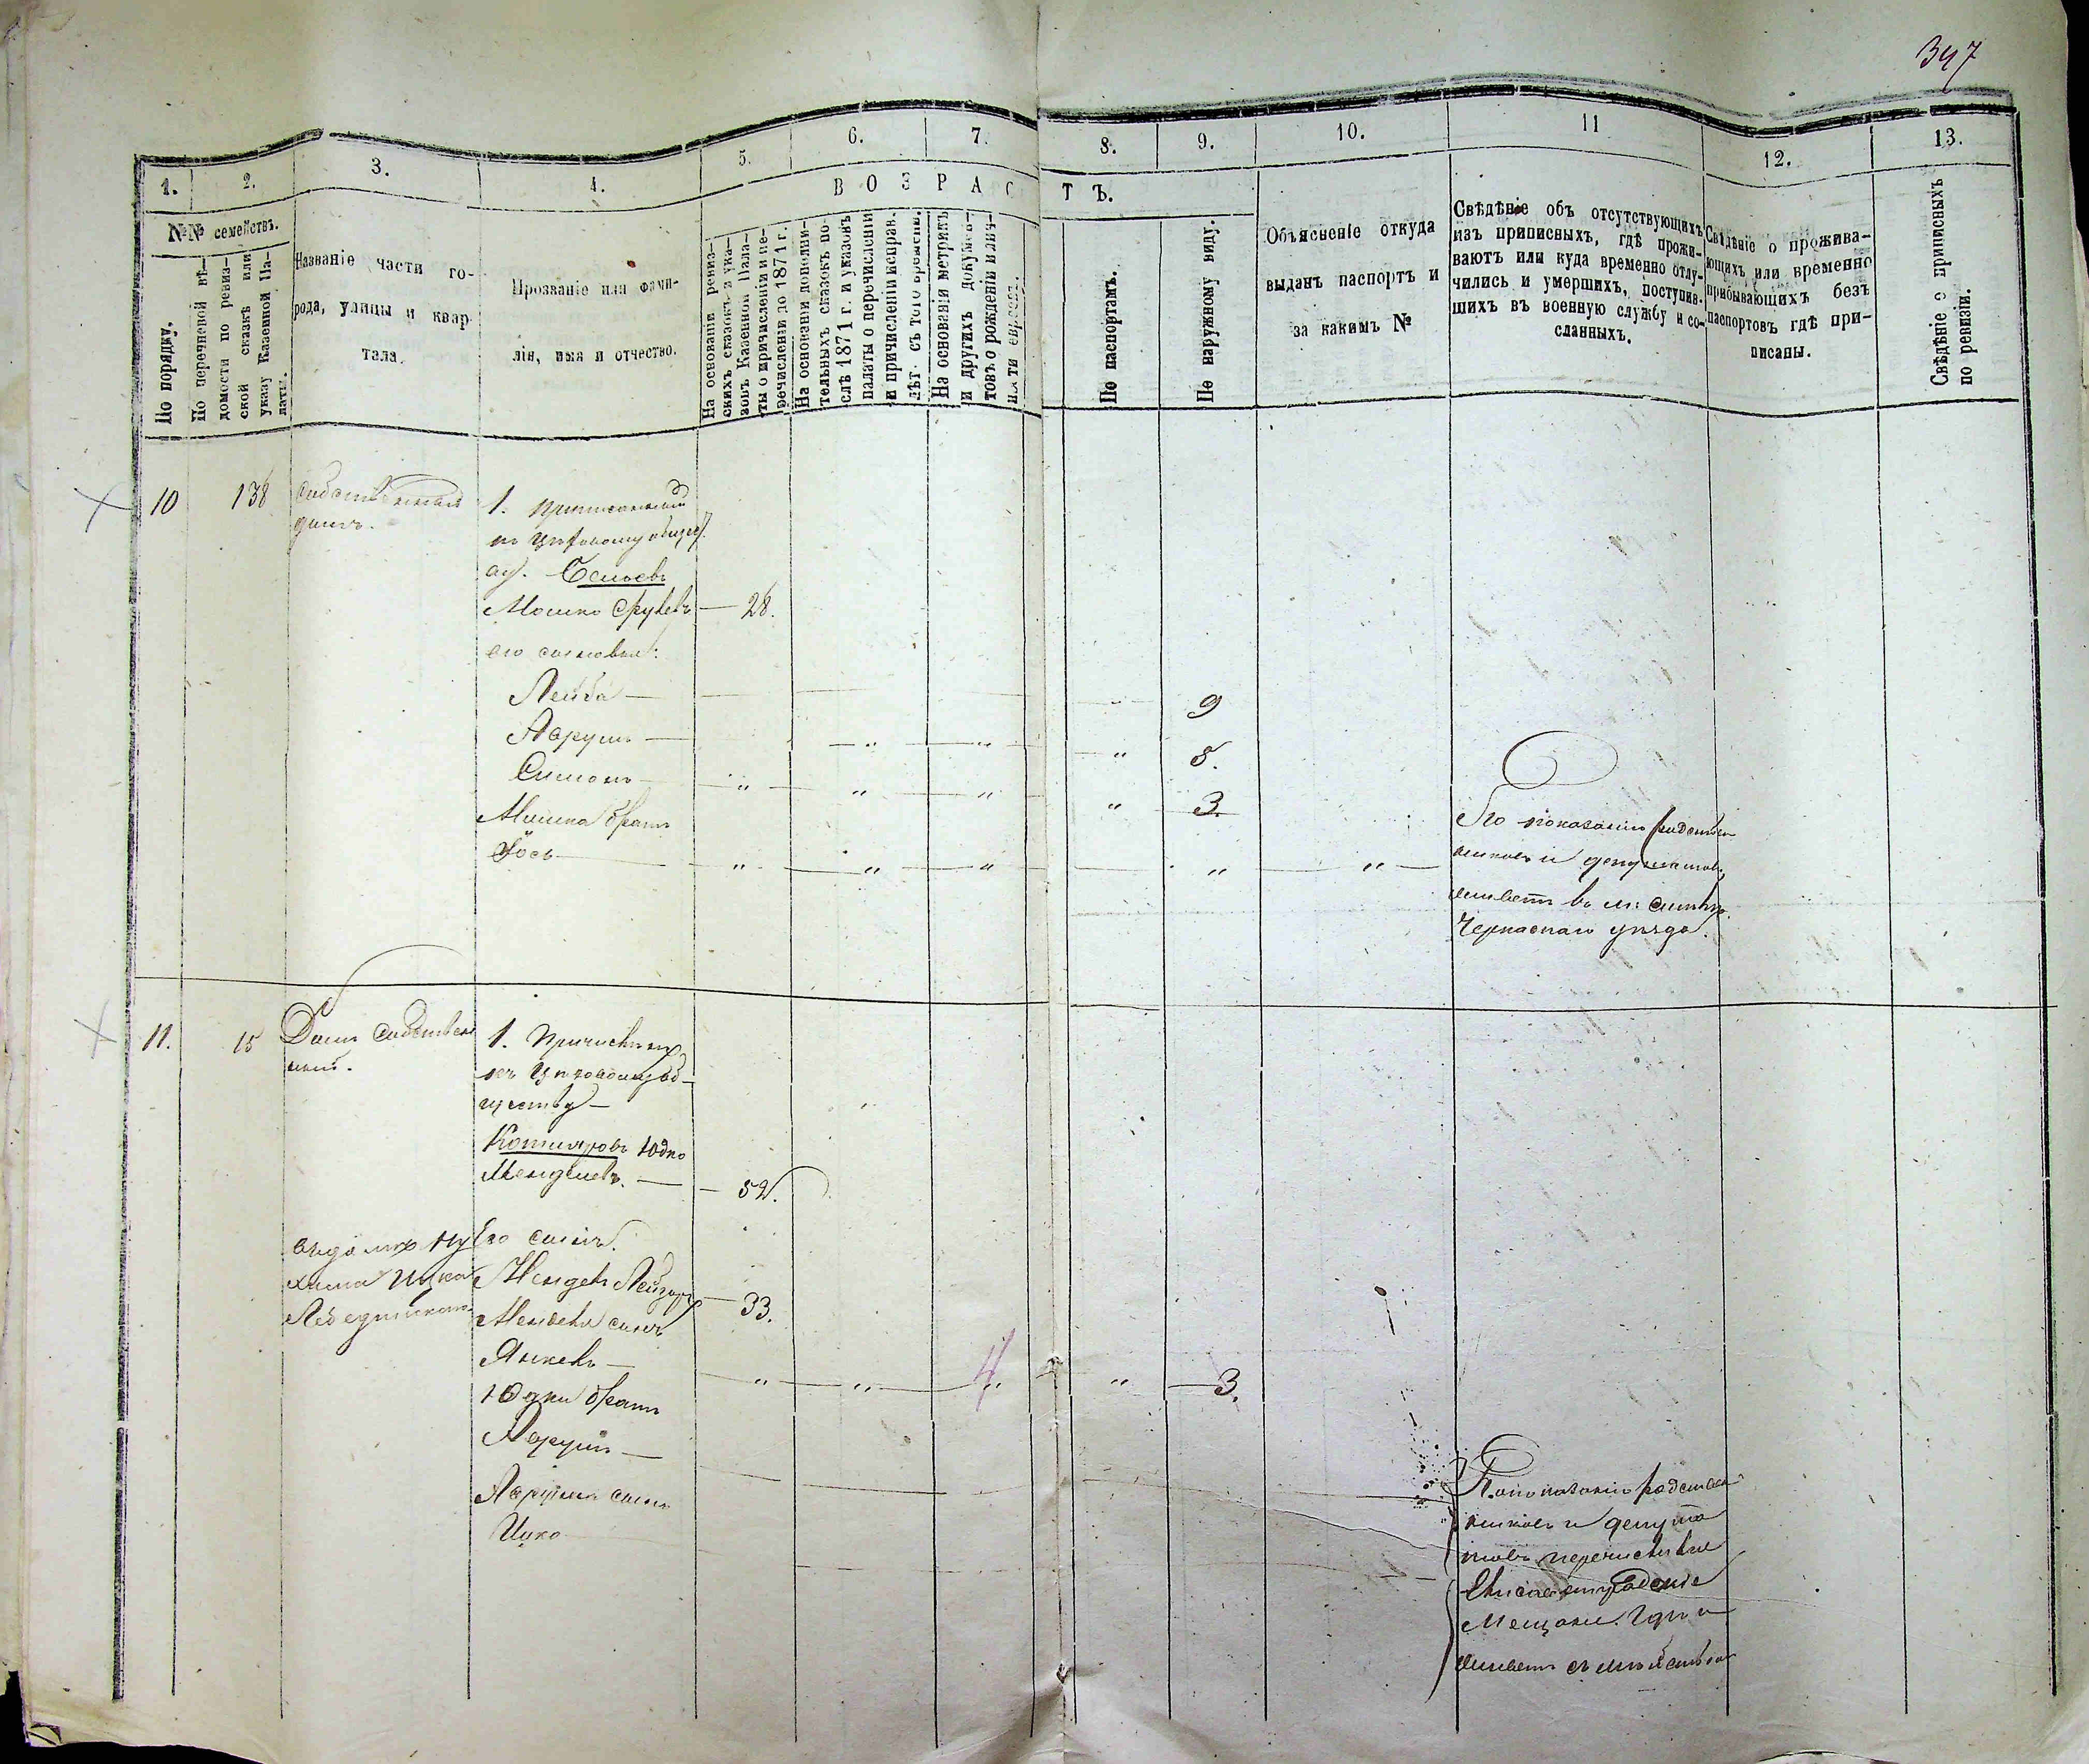 347
1.
2.
3.
4.
5.
6.
7.
8.
9.
10.
11
12.
13.
№№ семействъ.
По порядку.
По перечневой вѣ-
домости по ревиз-
ской сказкѣ или
указу Казенной Па-
латы.
Названіе части го-
рода, улицы и квар-
тала.
Прозваніе или фами-
лія, имя и отчество.
ВОЗРАСТЪ.
На основаніи ревиз-
скихъ сказокъ и ука-
зовъ Казенной Пала-
ты о причисленіи и пе-
речисленіи до 1871 г.
На основаніи дополни-
тельныхъ сказокъ по-
слѣ 1871 г. и указовъ
палаты о перечисленіи
и причисленіи исправ.
лѣт. съ того времени.
На основаніи метрикъ
и другихъ докумен-
товъ о рожденіи и лич-
ности евреевъ.
По паспортамъ.
По наружному виду.
Объясненіе откуда
выданъ паспортъ и
за какимъ №
Свѣдѣніе объ отсутствующихъ
изъ приписныхъ, гдѣ прожи-
ваютъ или куда временно отлу-
чились и умершихъ, поступив-
шихъ въ военную службу и со-
сланныхъ.
Свѣдѣніе о прожива-
ющихъ или временно
прибывающихъ безъ
паспортовъ гдѣ при-
писаны.
Свѣдѣніе о приписныхъ
по ревизіи.
10
138
собственный
домъ.
1.
Мошко Срулевъ — 28.
его сыновья:
Лейба — 9
Нарумъ — " " " 8.
Симонъ — " " " " 3.
Мошка братъ
Іось — " " " " "
По показанію родствен
никовъ и депутатовъ
живетъ въ м:
Черкаскаго уѣзда.
11.
15
Домъ собствен
ный.
1.
къ
ществу —
Котляровъ Юдко
Менделевъ. — 52.
Его сынъ.
Мендель Лейзоръ — 33.
Менделя сынъ
Янкель — " " " " 3.
4
Юдки братъ
Нарумъ —
Нарума сынъ
Ицко
Ицка
По показанію родствен
никовъ и депута
товъ перечислился
Мещане
живетъ